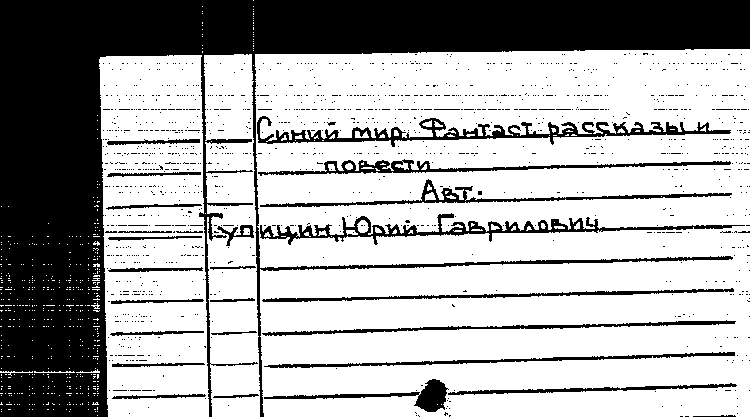 Синий мир. Фантаст. рассказы и
повести
Авт.
Тупицин, Юрий Гаврилович